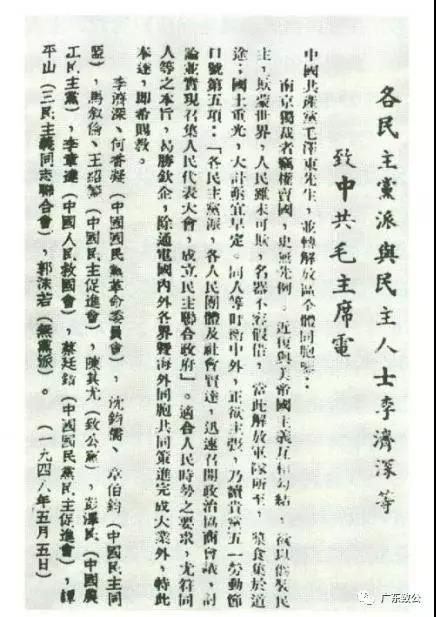 各民主黨派與民主人士李濟深等
致中共毛主席電
中國共產黨毛澤東先生，並轉解放區全體同胞鑒：
南京獨裁者竊權賣國，史無先例。近復與美帝國主義互相勾結 欲以偽裝民
主，欺蒙世界，人民雖未可欺，名器不容假借，當此解放軍隊所至，簞食集於道
途；國土重光，大計亟宜早定。同人等盱衡中外，正欲主張，乃讀貴黨五一勞動節
口號第五項：「各民主黨派，各人民團體及社會賢達，迅速召開政治協商會議，討
論並實現召集人民代表大會，成立民主聯合政府」。適合人民時勢之要求，尤符同
人等之本旨，曷勝欽企，除通電國內外各界暨海外同胞共同策進完成大業外，特此
奉達，即希賜教。
李濟深、何香凝（中國國民黨革命委員會），沈鈞儒、章伯鈞（中國民主同
盟），馬敘倫、王紹鏊（中國民主促進會），陳其尤（致公黨），彭澤民（中國農
工民主黨），李章達（中國人民救國會），蔡廷鍇（中國國民黨民主促進會），譚
平山（三民主義同志聯合會），郭沫若（無黨派）。（一九四八年五月五日）
广东致公